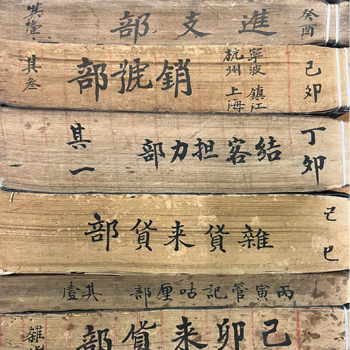 癸酉
進支部
其壹
己卯
鎮江
寧波
上海
杭州
銷號部
其叁
丁卯
結客担力部
其一
己巳
雜貨来貨部
丙寅管記咕厘部
其壹
己卯来貨部
雜